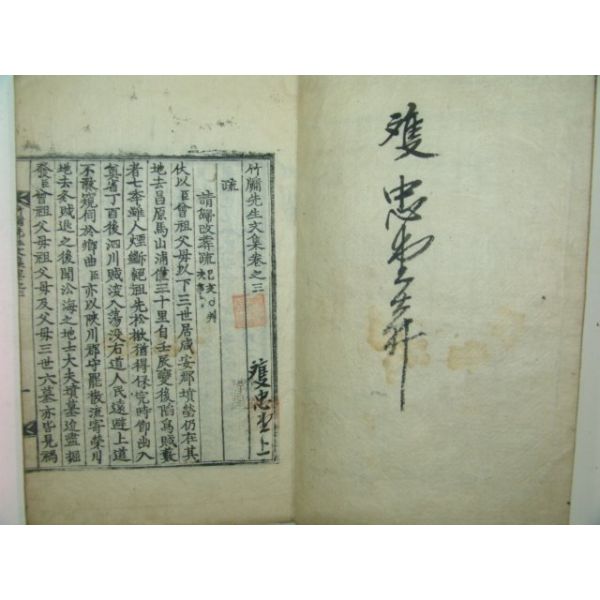 雙
忠
堂
竹牖先生文集卷之三
疏
請歸改葬疏
伏以臣曾祖父母以下三世居咸安郡墳塋仍在其
地去昌原馬山浦僅三十里自壬辰變後陷爲賊藪
者七年雖人煙斷絶祖先松楸猶得保完時入
奠省丁酉後泗川賊流入蕩沒右道人民遠避上道
不敢窺伺於鄕曲臣亦以陜川郡守罷散流寄榮川
地去冬賊退之後聞沿海之地士大夫墳墓迨盡掘
發臣曾祖父母祖父母及父母三世六墓亦皆見禍
竹牖先生文集卷之三 一
雙忠堂上